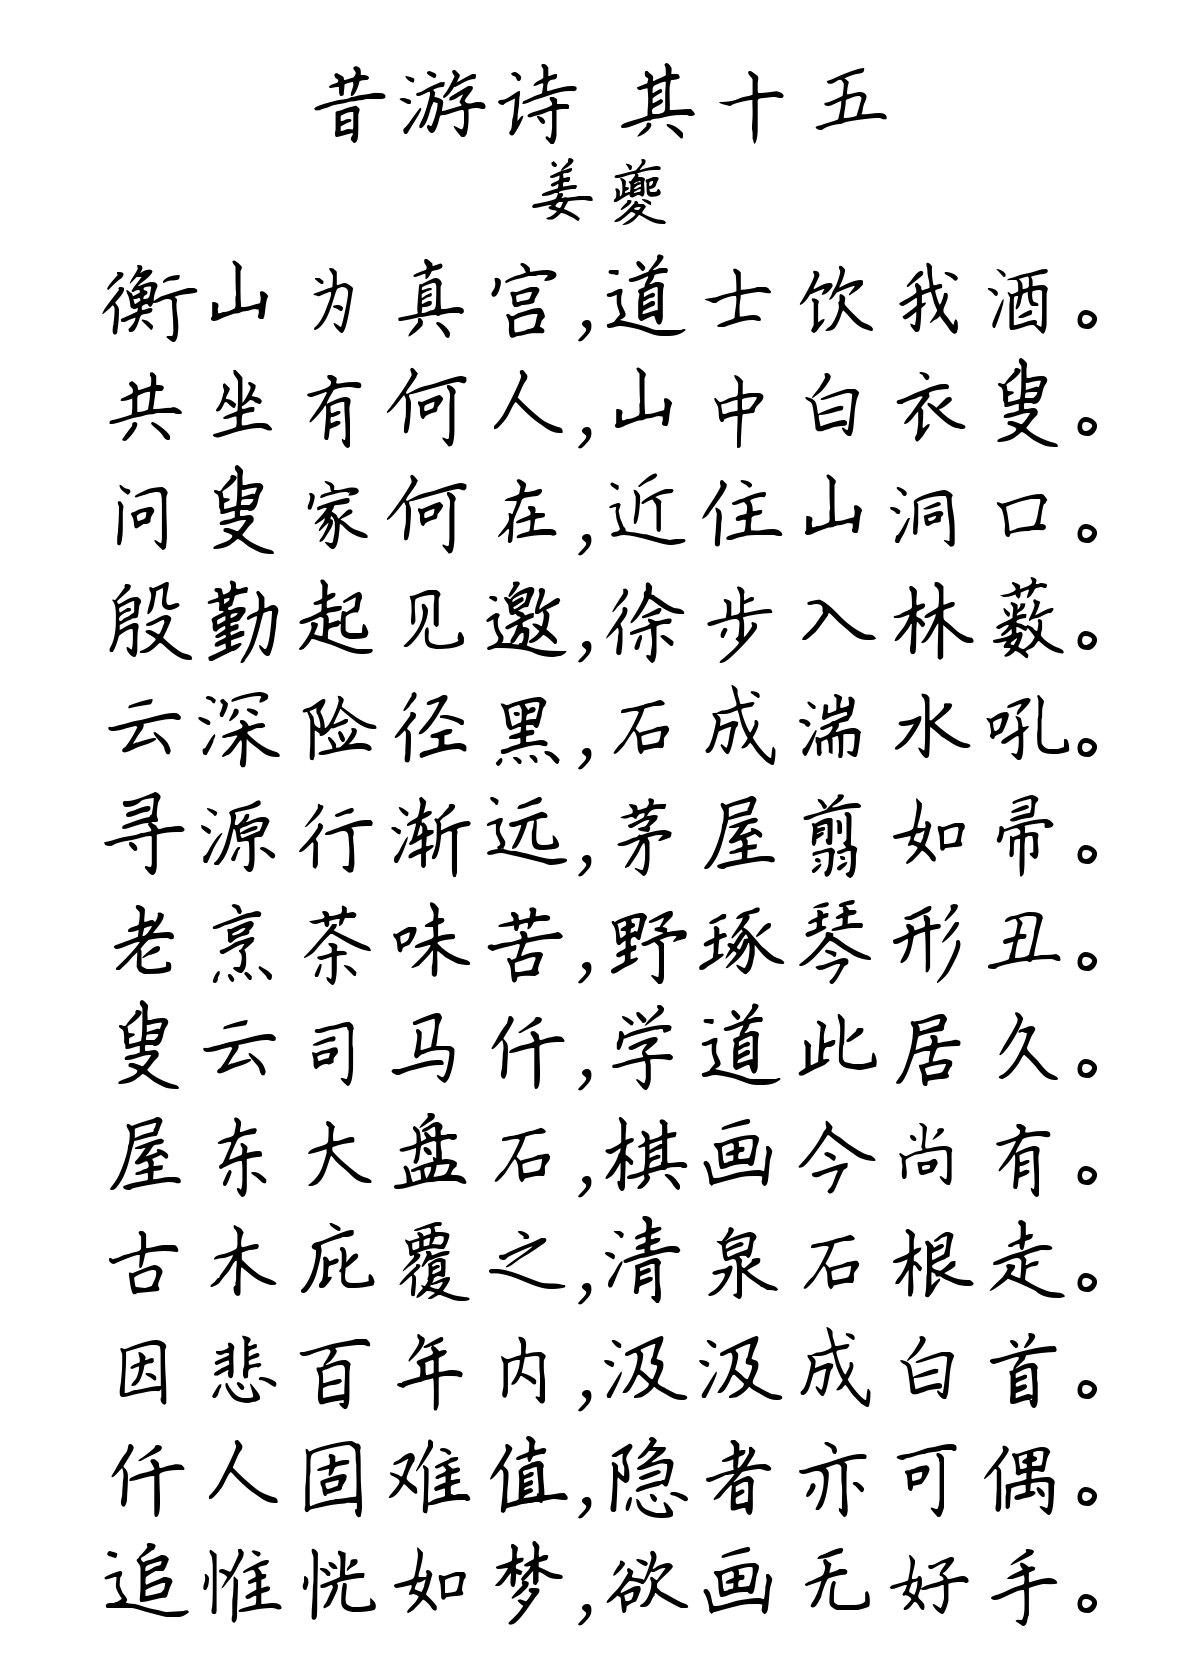 昔游诗 其十五
姜夔
衡山为真宫,道士饮我酒。
共坐有何人,山中白衣叟。
问叟家何在,近住山洞口。
殷勤起见邀,徐步入林薮。
云深险径黑,石成湍水吼。
寻源行渐远,茅屋翦如帚。
老烹茶味苦,野琢琴形丑。
叟云司马仟,学道此居久。
屋东大盘石,棋画今尚有。
古木庇覆之,清泉石根走。
因悲百年内,汲汲成白首。
仟人固难值,隐者亦可偶。
追惟恍如梦,欲画无好手。